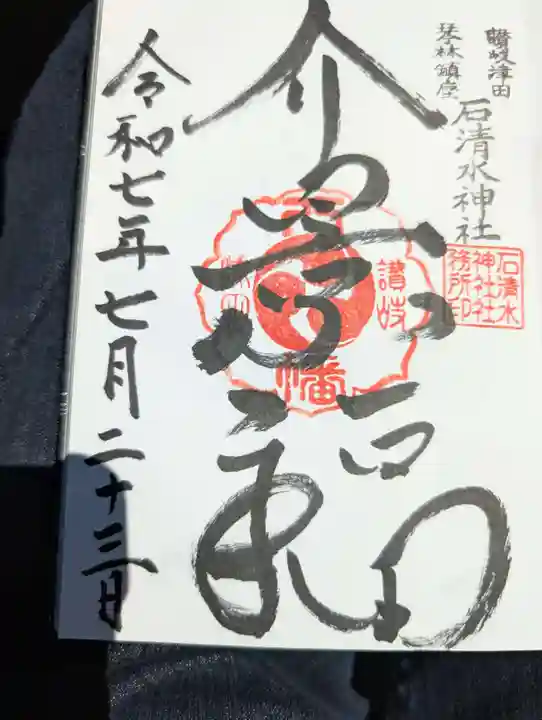 讚岐津田
琴林鎮座
石清水神社
石清水
神社社
務所印
介景福
讃岐
幡
津田
令和七年七月二十三日